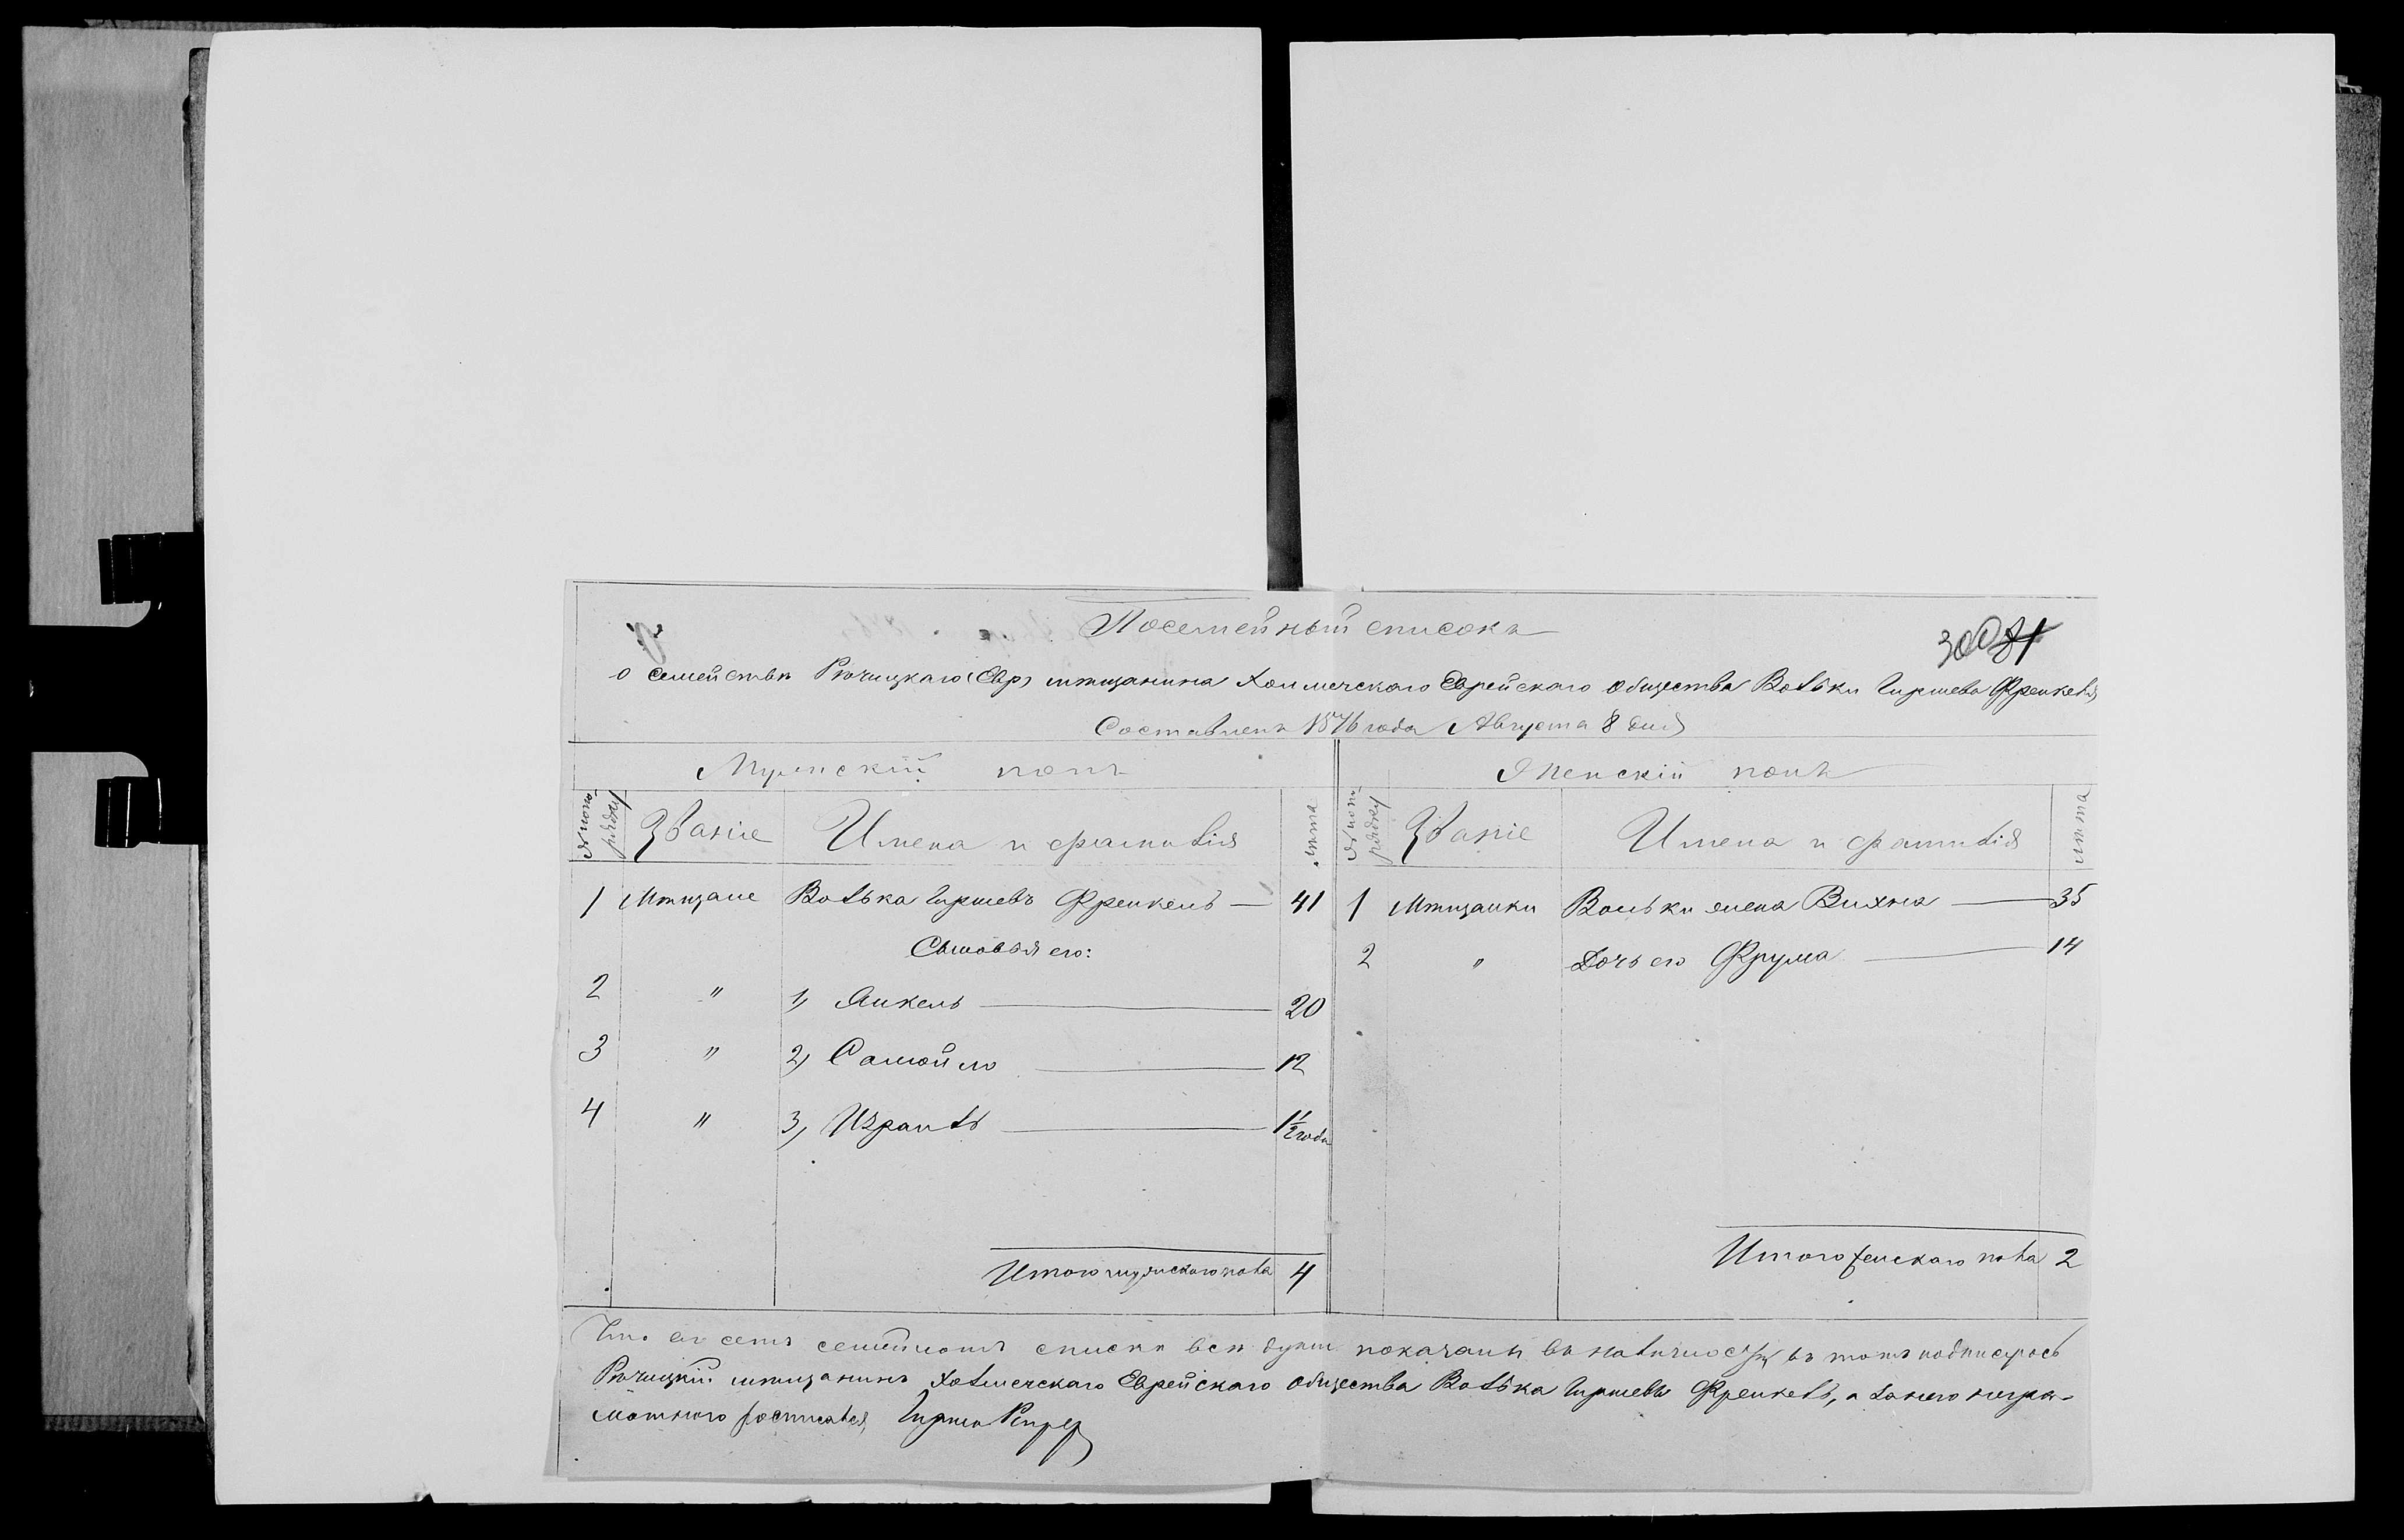 Посемейный списокъ
300 81
о семействѣ Рѣчицкаго (Евр) мѣщанина Холмечскаго Еврейскаго общества Вольки Гиршева Френкеля
Составленъ 1876 года Августа 8 дня
Мужскій полъ
№ по порядку Званіе Имена и фамилія лѣта
1 Мѣщане Волька Гиршевъ Френкель — 41
Сыновья его:
2 " 1, Янкель — 20
3 " 2, Самойло — 12
4 " 3, Израиль — 1½ года
Итого мужскаго пола 4
Женскій полъ
№ по порядку Званіе Имена и фамилія лѣта
1 Мѣщанки Вольки жена Вихна — 35
2 " Дочь его Фрума — 14
Итого женскаго пола 2
Что въ семъ семейномъ списки всѣ души показаны въ наличности въ томъ подписуюсь
Рѣчицкій мѣщанинъ Холмечскаго Еврейскаго общества Волька Гиршевъ Френкель, а за него негра-
мотнаго росписался, Гирша